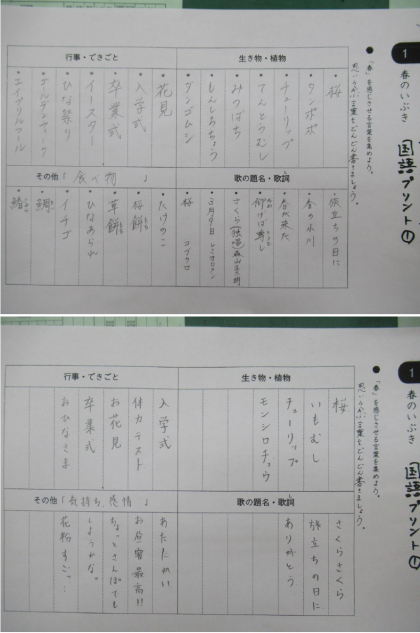 1
春のいぶき
国語プリント①
●「春」を感じさせる言葉を集めよう。
思いうかぶ言葉をどんどん書きましょう。
生き物・植物
・桜
・タンポポ
・チューリップ
・てんとうむし
・みつばち
・もんしろちょう
・ダンゴムシ
行事・できごと
・花見
・入学式
・卒業式
・イースター
・ひな祭り
・ゴールデンウィーク
・エイプリルフール
歌の題名・歌詞
・旅立ちの日に
・春の小川
・春が来た
・仰げば尊し
・さくら(独唱)森山直太朗
・3月9日 レミオロメン
・桜 コブクロ
その他「食べ物」
・たけのこ
・桜餅
・草餅
・ひなあられ
・イチゴ
・鯛
1
春のいぶき
国語プリント①
●「春」を感じさせる言葉を集めよう。
思いうかぶ言葉をどんどん書きましょう。
生き物・植物
桜
いもむし
チューリップ
モンシロチョウ
行事・できごと
入学式
体力テスト
お花見
卒業式
おひなさま
歌の題名・歌詞
さくらさくら
旅立ちの日に
ありがとう
その他「気持ち、感情」
あたたかい
お昼寝最高!!
ちょっとさんぽでも
しようかな。
花粉すごっ…